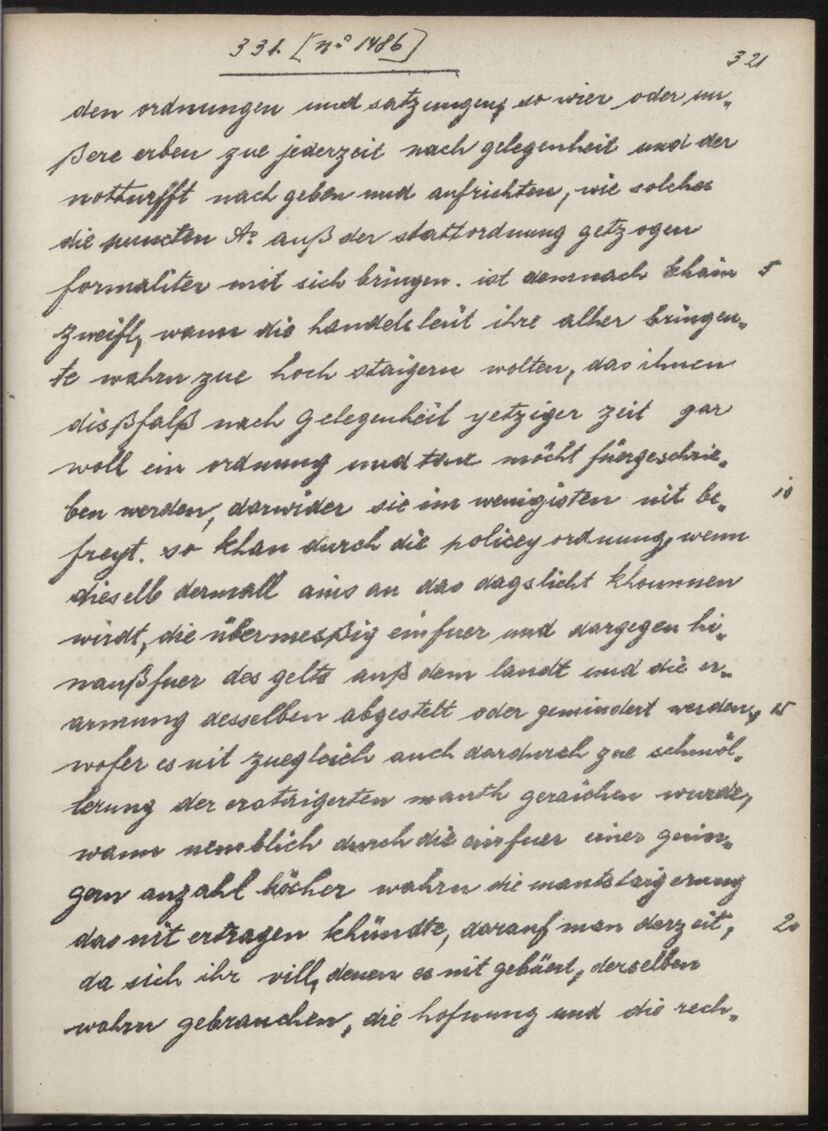 331. [nº 1486]
321
den ordnungen und satzungen, so wier oder un„
ßere erben zue jederzeit nach gelegenheit und der
notturfft nach geben und aufrichten, wie solches
die puncten Aº auß der stattordnung getzogen
formaliter mit sich bringen. ist demnach khain 5
zweifl, wann die handelsleüt ihre alher bringen„
te wahrn zue hoch staigern wolten, das ihnen
dißfalß nach gelegenheit yetziger zeit gar
woll ein ordnung und tax möcht fürgeschrie„
ben werden, darwider sie im wenigisten nit be„ 10
freyt. so khan durch die policey ordnung, wenn
dieselb dermall ains an das dagslicht khummen
wirdt, die übermeßig einfuer und dargegen hi„
naußfuer des gelts auß dem landt und die er„
armung desselben abgestelt oder gemindert werden, 15
wofer es nit zuegleich auch dardurch zue schmöl„
lerung der erstaigerten mauth geraichen wurde,
wann nemblich durch die einfuer einer gerin„
gern anzahl höcher wahrn die mautstaigerung
das nit ertragen khündte, darauf man derzeit, 20
da sich ihr vill, denen es nit gebüert, derselben
wahrn gebrauchen, die hofnung und die rech„